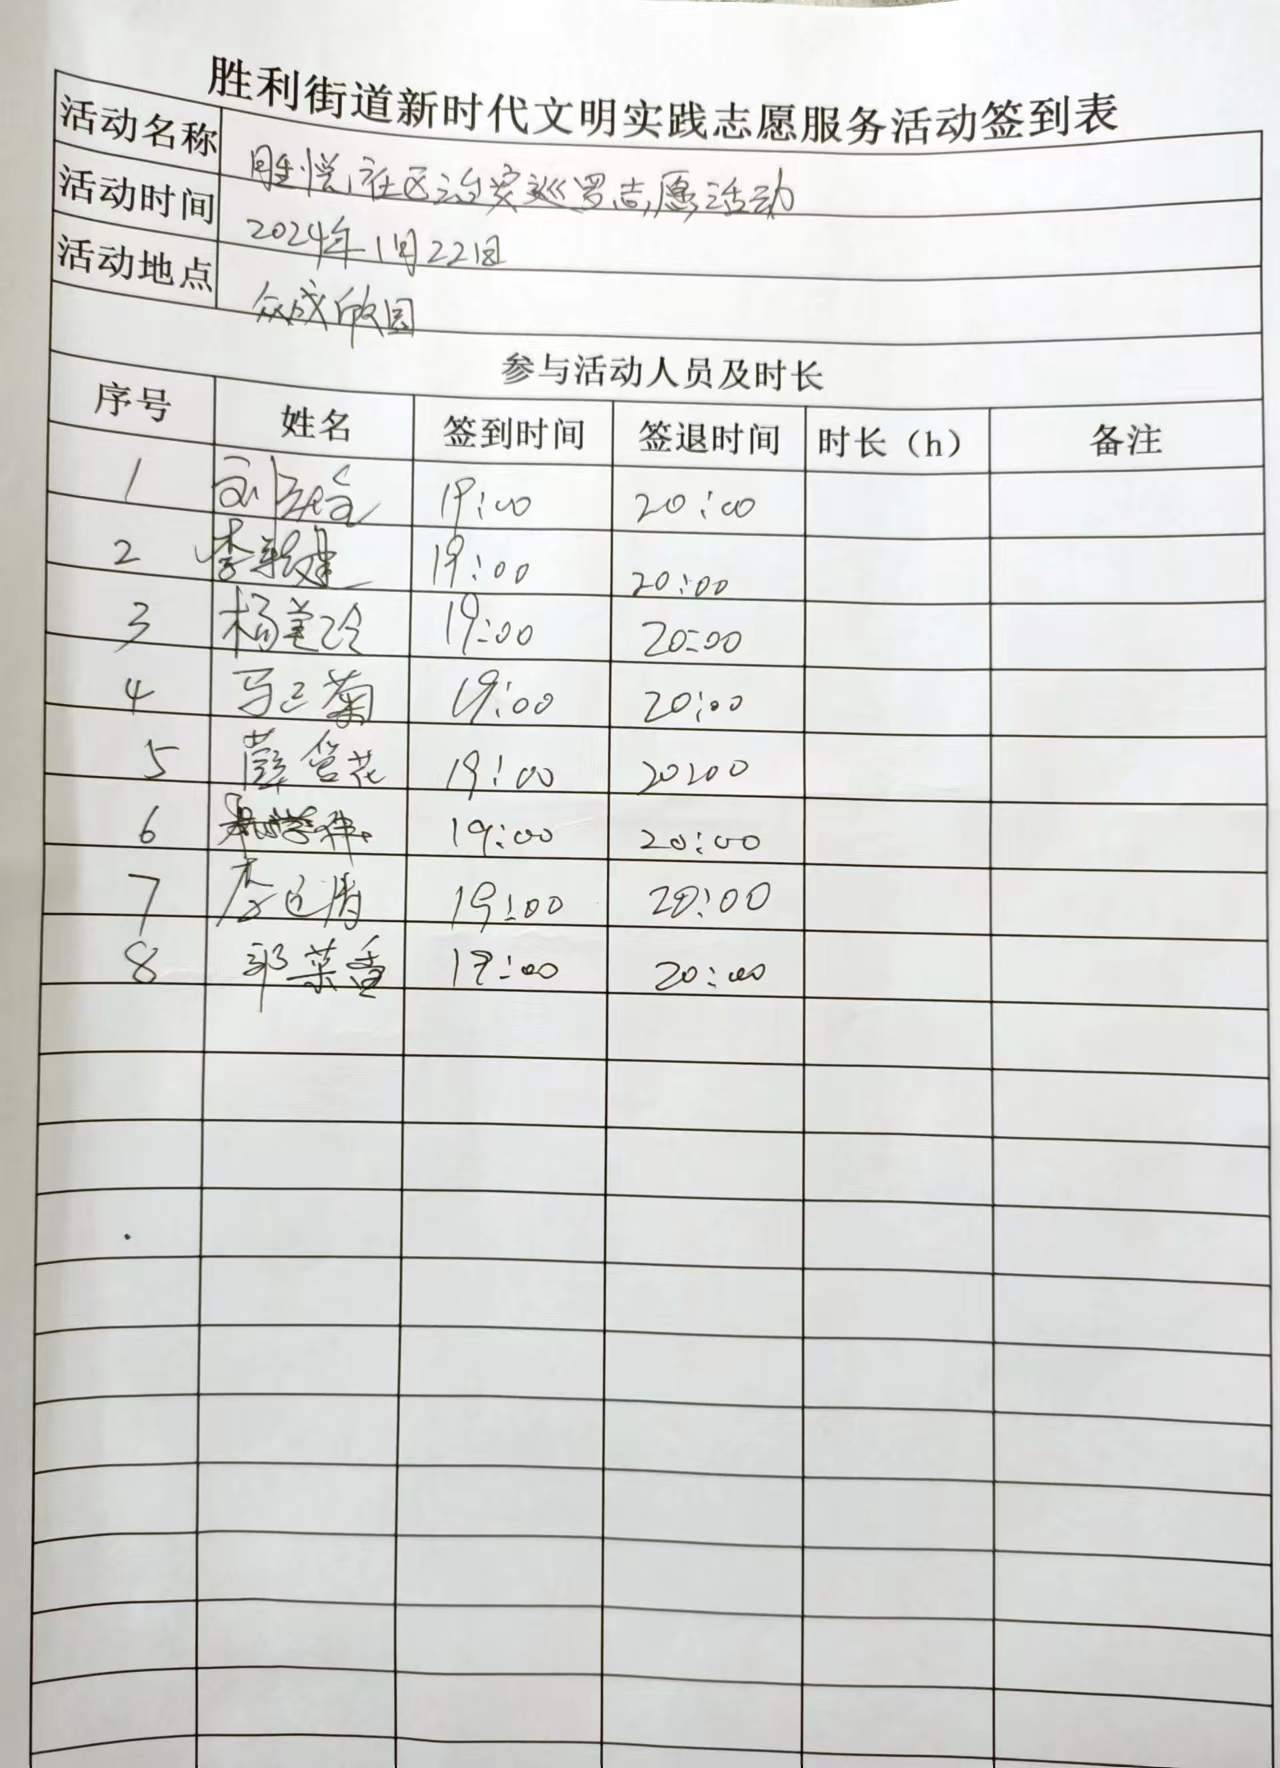 胜利街道新时代文明实践志愿服务活动签到表
活动名称 胜悦社区治安巡罗志愿活动
活动时间 2024年1月22日
活动地点 众成欣园
参与活动人员及时长
序号 姓名 签到时间 签退时间 时长（h） 备注
1 19:00 20:00
2 李 19:00 20:00
3 杨美玲 19:00 20:00
4 马三菊 19:00 20:00
5 薛 花 19:00 20:00
6 19:00 20:00
7 李 19:00 20:00
8 郭菜香 19:00 20:00